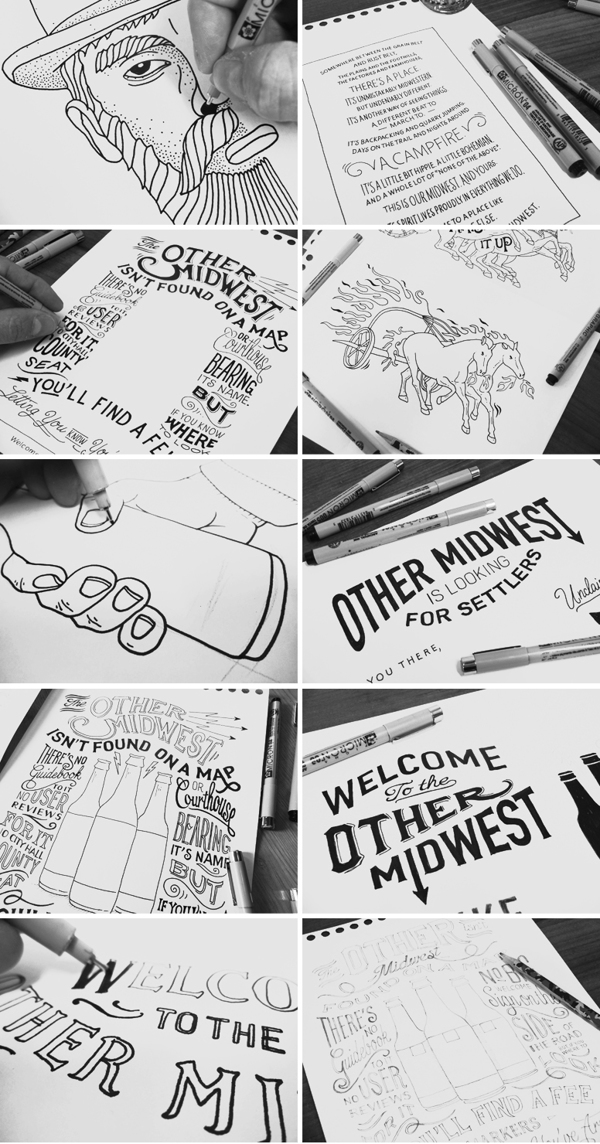 MICRON
SOMEWHERE BETWEEN THE GRAIN BELT
AND RUST BELT,
THE PLAINS AND THE FOOTHILLS,
THE FACTORIES AND FARMHOUSES,
THERE'S A PLACE
IT'S UNMISTAKABLY MIDWESTERN
BUT UNDENIABLY DIFFERENT
IT'S ANOTHER WAY OF SEEING THINGS
A DIFFERENT BEAT TO
MARCH TO
IT'S BACKPACKING AND QUARRY JUMPING.
DAYS ON THE TRAIL AND NIGHTS AROUND
A CAMPFIRE
IT'S A LITTLE BIT HIPPIE. A LITTLE BOHEMIAN.
AND A WHOLE LOT OF "NONE OF THE ABOVE".
THIS IS OUR MIDWEST. AND YOURS.
SPIRIT LIVES PROUDLY IN EVERYTHING WE DO.
TO A PLACE LIKE
ELSE.
MIDWEST.
MICRON
The OTHER
MIDWEST
ISN'T FOUND ON A MAP
THERE'S NO
Guidebook
TO IT
NO USER
REVIEWS
FOR IT.
NO CITY HALL
COUNTY
SEAT
OR
Courthouse
BEARING
IT'S NAME.
BUT
IF YOU KNOW
WHERE
TO LOOK
YOU'LL FIND A FE
Letting You Know You
Welcom
IT UP
OTHER MIDWEST
IS LOOKING
FOR SETTLERS
Unclai
YOU THERE,
The OTHER
MIDWEST
ISN'T FOUND ON A MAP
THERE'S NO
Guidebook
TO IT
NO USER
REVIEWS
FOR IT
NO CITY HALL
COUNTY
SEAT
OR
Courthouse
BEARING
IT'S NAME
BUT
IF YOU'LL
MICRON
WELCOME
To the
OTHER
MIDWEST
KE
WELCO
TO THE
THER
MI
The OTHER
Midwest
THERE'S
NO
Guidebook
TO IT
NO
USER
REVIEWS
NO BIG
SIDE
OF
THE ROAD
LL FIND A FEE
MARKERS